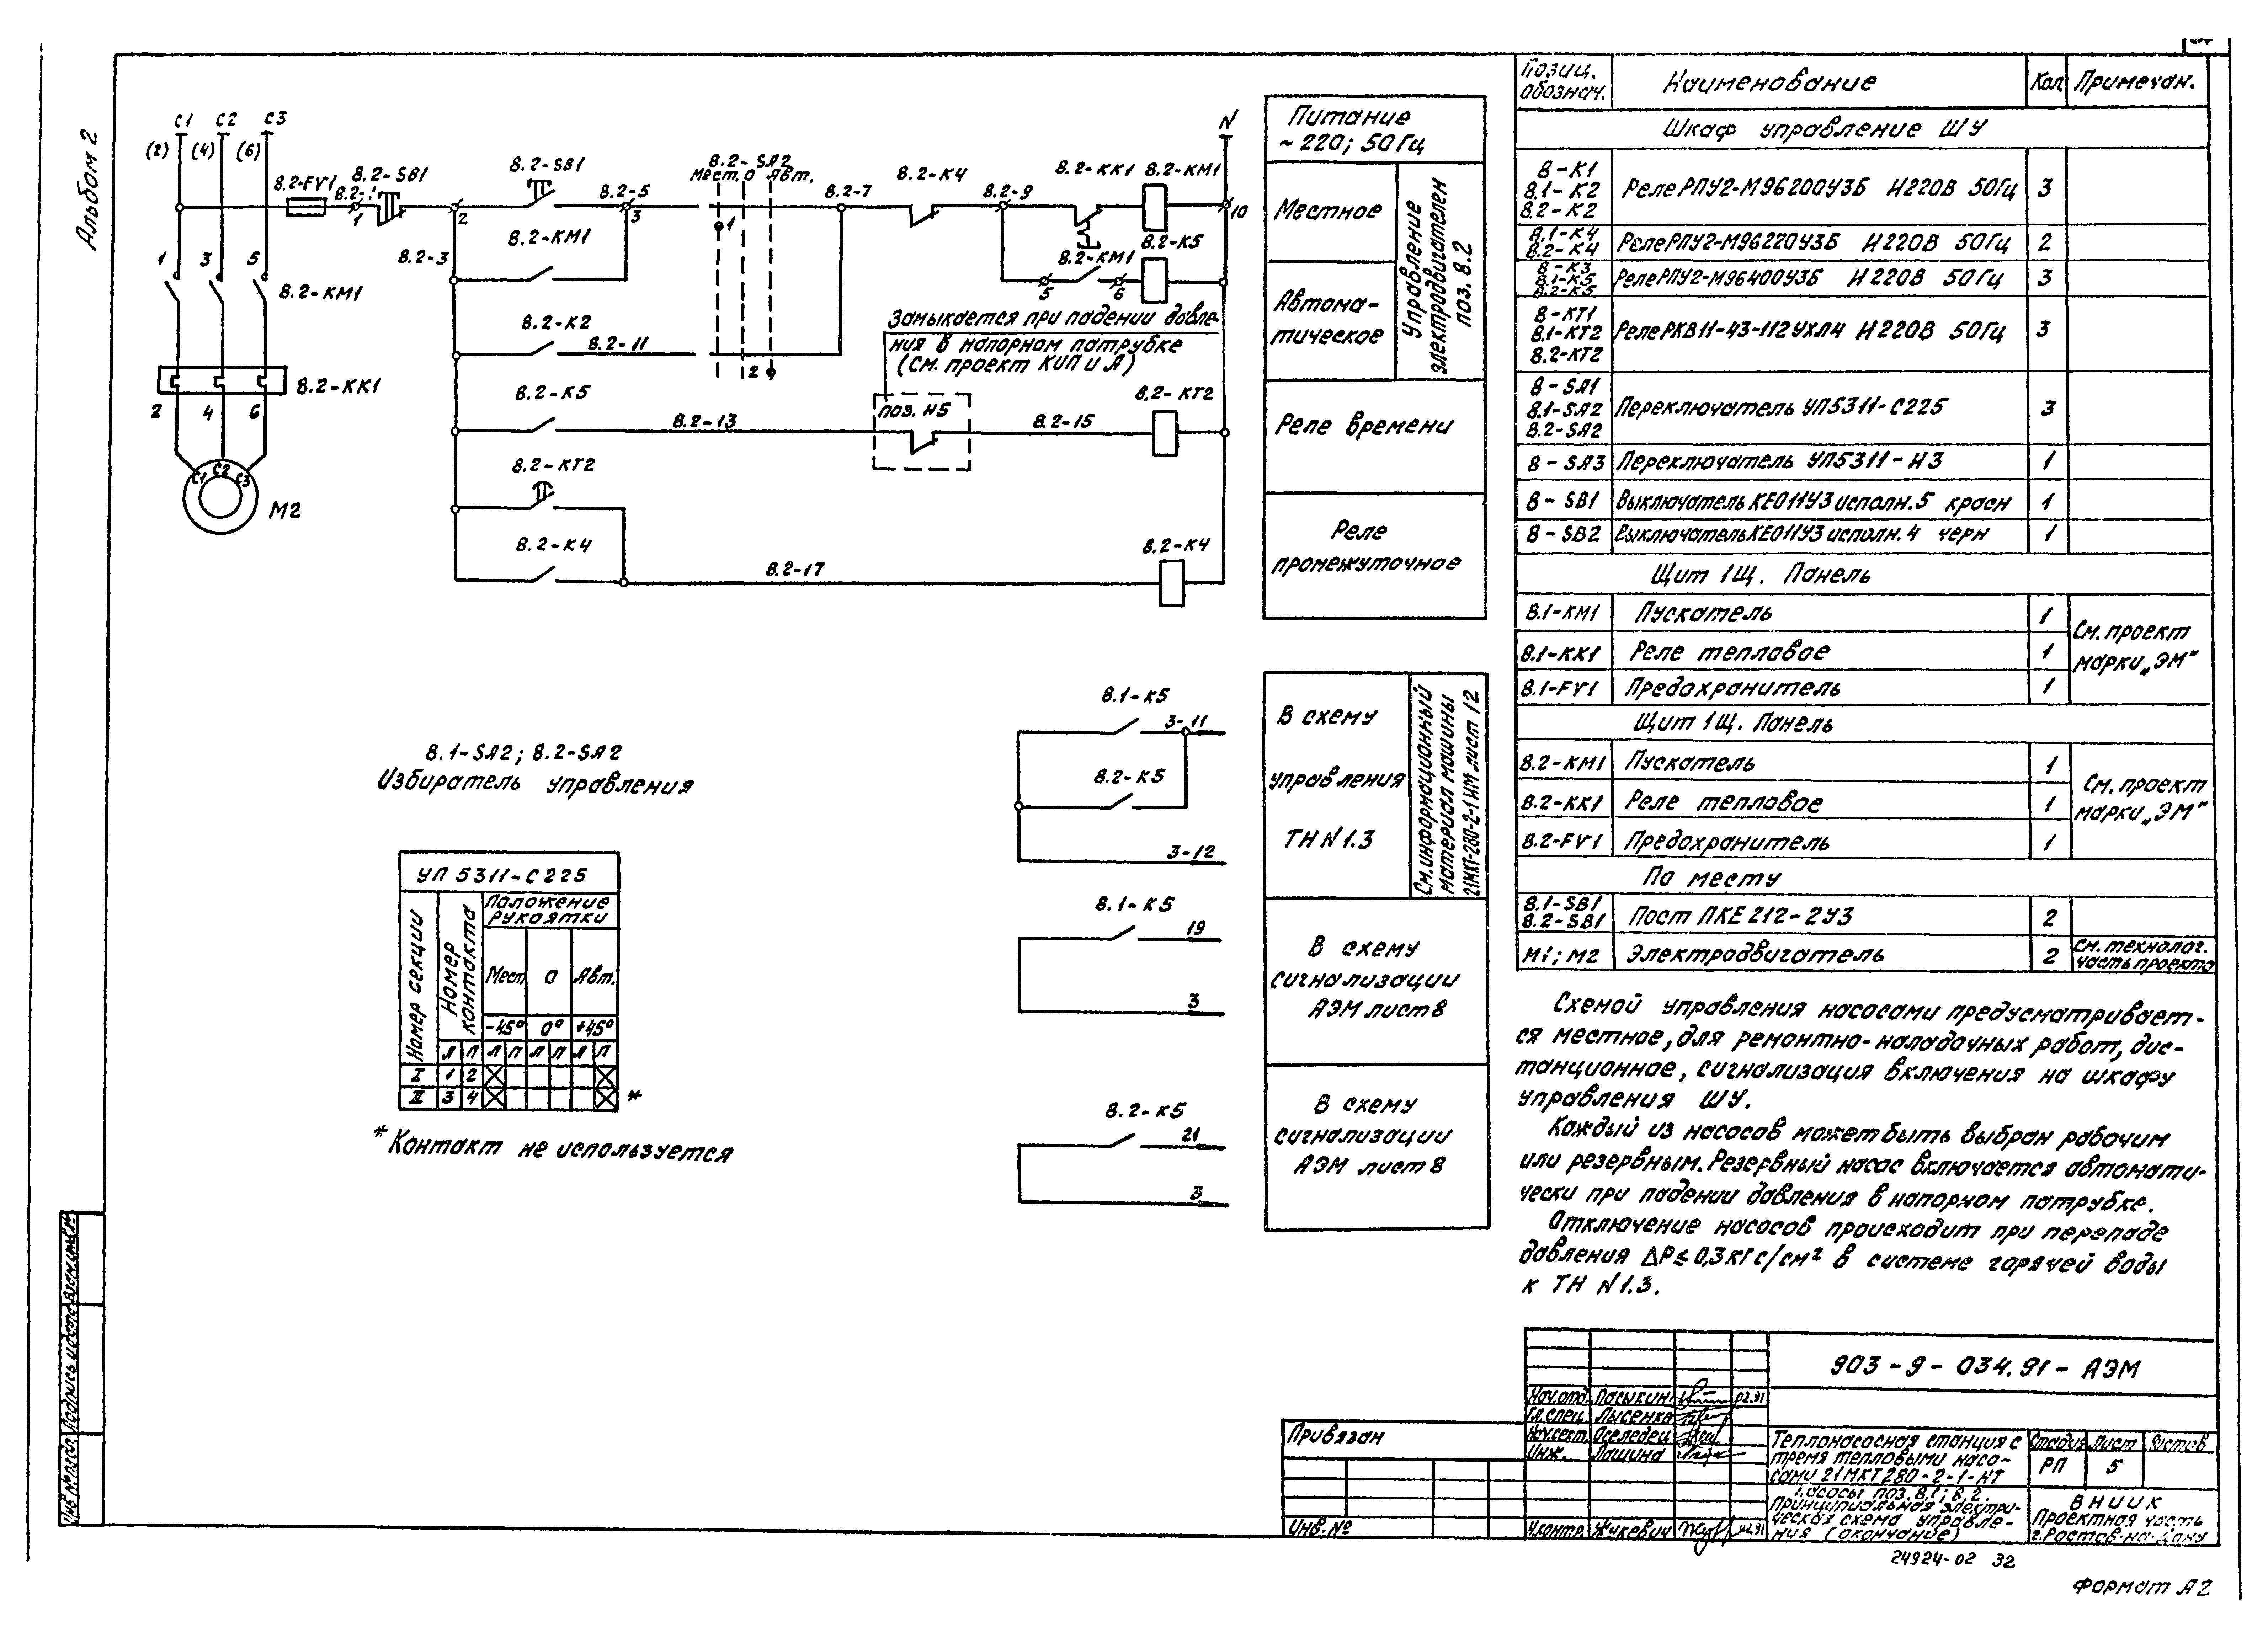 Альбом 2
С1 С2 С3
(2) (4) (6)
8.2-FV1
8.2-SB1
8.2-SB1
8.2-5
8.2-SA2
Мест. О Авт.
8.2-7
8.2-К4
8.2-9
8.2-КК1 8.2-КМ1
N
1
2
3
1
10
8.2-КМ1
8.2-3
8.2-К5
8.2-КМ1
5
6
1 3 5
8.2-КМ1
8.2-К2
8.2-11
2
Замыкается при падении давле-
ния в напорном патрубке
(См. проект КИП и А)
8.2-КК1
2 4 6
8.2-К5
8.2-13
поз. Н5
8.2-15
8.2-КТ2
С1 С2 С3
М2
8.2-КТ2
8.2-К4
8.2-17
8.2-К4
Питание
~220; 50Гц
Местное
Автома-
тическое
Управление
электродвигателем
поз. 8.2
Реле времени
Реле
промежуточное
8.1-SA2; 8.2-SA2
Избиратель управления
УП 5311-С225
Номер секции
Номер
контакта
Положение
рукоятки
Мест. О Авт.
-45° 0° +45°
Л П Л П Л П Л П
I 1 2
II 3 4 *
* Контакт не используется
8.1-К5
3-11
8.2-К5
3-12
8.1-К5
19
3
8.2-К5
21
3
В схему
управления
ТН N1.3
См. информационный
материал машины
21МКТ-280-2-1 ИМ лист 12
В схему
сигнализации
АЭМ лист 8
В схему
сигнализации
АЭМ лист 8
Позиц.
обознач.
Наименование
Кол.
Примечан.
Шкаф управление ШУ
8-К1
8.1-К2
8.2-К2
Реле РПУ2-М96200У3Б И220В 50Гц 3
8.1-К4
8.2-К4
Реле РПУ2-М96220У3Б И220В 50Гц 2
8-К3
8.1-К5
8.2-К5
Реле РПУ2-М96400У3Б И220В 50Гц 3
8-КТ1
8.1-КТ2
8.2-КТ2
Реле РКВ11-43-112УХЛ4 И220В 50Гц 3
8-SA1
8.1-SA2
8.2-SA2
Переключатель УП5311-С225 3
8-SA3 Переключатель УП5311-Н3 1
8-SB1 Выключатель КЕ011У3 исполн. 5 красн 1
8-SB2 Выключатель КЕ011У3 исполн. 4 черн 1
Щит 1Щ. Панель
8.1-КМ1 Пускатель 1
8.1-КК1 Реле тепловое 1
8.1-FV1 Предохранитель 1
См. проект
марки „ЭМ"
Щит 1Щ. Панель
8.2-КМ1 Пускатель 1
8.2-КК1 Реле тепловое 1
8.2-FV1 Предохранитель 1
См. проект
марки „ЭМ"
По месту
8.1-SB1
8.2-SB1
Пост ПКЕ 212-2У3 2
М1; М2 Электродвигатель 2
См. технолог.
часть проекта
Схемой управления насосами предусматривает-
ся местное, для ремонтно-наладочных работ, дис-
танционное, сигнализация включения на шкафу
управления ШУ.
Каждый из насосов может быть выбран рабочим
или резервным. Резервный насос включается автомати-
чески при падении давления в напорном патрубке.
Отключение насосов происходит при перепаде
давления ΔР≤0,3кгс/см² в системе горячей воды
к ТН N1.3.
903-9-034.91-АЭМ
Нач.отд. Пасыкин 02.91
Гл.спец. Лысенко
Нач.сект. Оселедец
Инж. Пашина
Н.контр. Жукевич 02.91
Привязан
Инв. №
Теплонасосная станция с
тремя тепловыми насо-
сами 21МКТ280-2-1-НТ
Насосы поз. 8.1; 8.2.
Принципиальная электри-
ческая схема управле-
ния (окончание)
Стадия Лист Листов
РП 5
ВНИИК
Проектная часть
г. Ростов-на-Дону
24924-02 32
Формат А2
Инв № подл. Подпись и дата Взам.инв.№